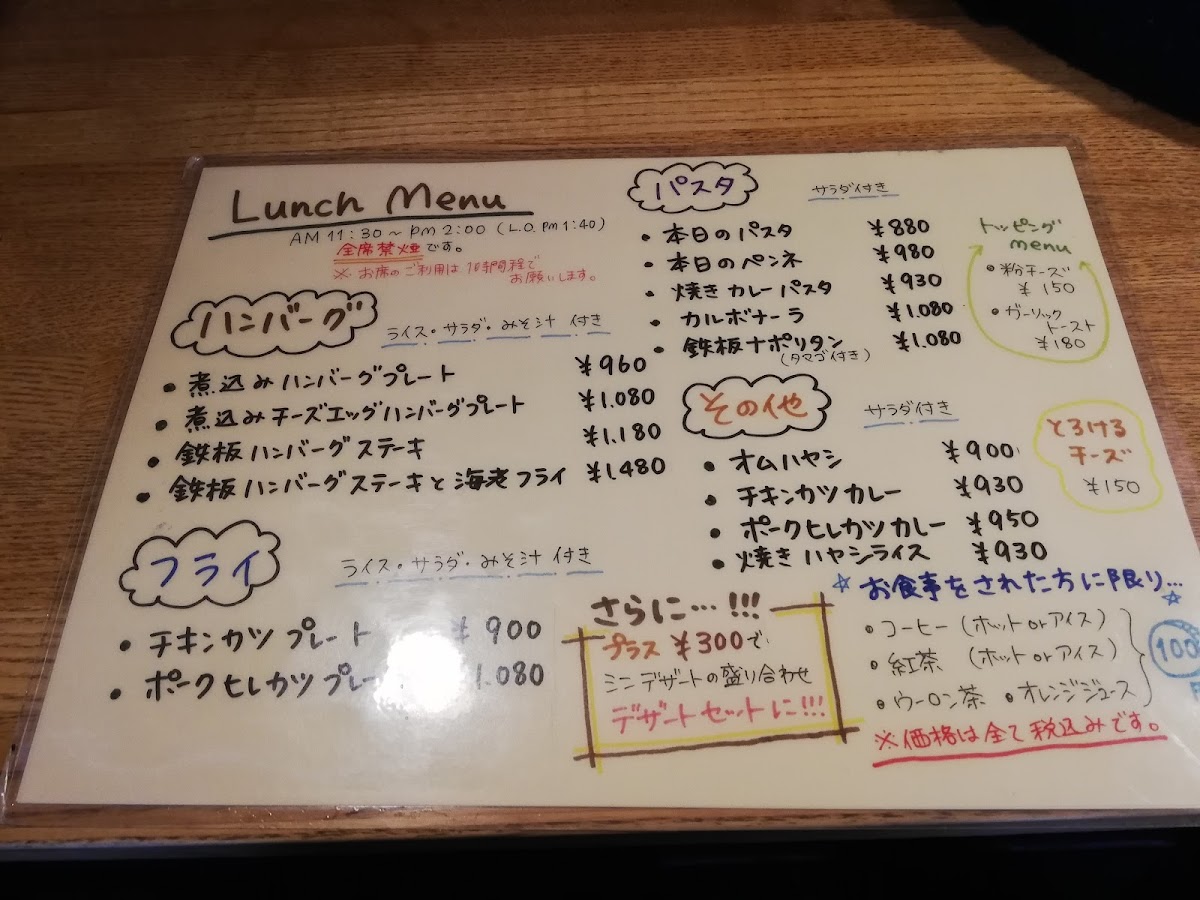 Lunch Menu
AM 11:30~pm 2:00 (L.O. pm 1:40)
全席禁煙です。
※ お席のご利用は 1時間程で
お願いします。
ハンバーグ
ライス・サラダ・みそ汁 付き
• 煮込みハンバーグプレート ¥960
• 煮込みチーズエッグハンバーグプレート ¥1.080
• 鉄板ハンバーグステーキ ¥1.180
• 鉄板ハンバーグステーキと海老フライ ¥1,480
フライ
ライス・サラダ・みそ汁 付き
• チキンカツプレート ¥900
• ポークヒレカツプレー 1.080
パスタ
サラダ付き
• 本日のパスタ ¥880
• 本日のペンネ ¥980
• 焼きカレーパスタ ¥930
• カルボナーラ ¥1.080
• 鉄板ナポリタン ¥1.080
(タマゴ付き)
トッピング
menu
• 粉チーズ
¥150
• ガーリック
トースト
¥180
その他
サラダ付き
• オムハヤシ ¥900
• チキンカツカレー ¥930
• ポークヒレカツカレー ¥950
• 焼きハヤシライス ¥930
とろける
チーズ
¥150
さらに…!!!
プラス ¥300で
ミニデザートの盛り合わせ
デザートセットに!!!
☆お食事をされた方に限り…☆
• コーヒー (ホット or アイス)
• 紅茶 (ホット or アイス)
• ウーロン茶 • オレンジジュース
100
※価格は全て税込みです。